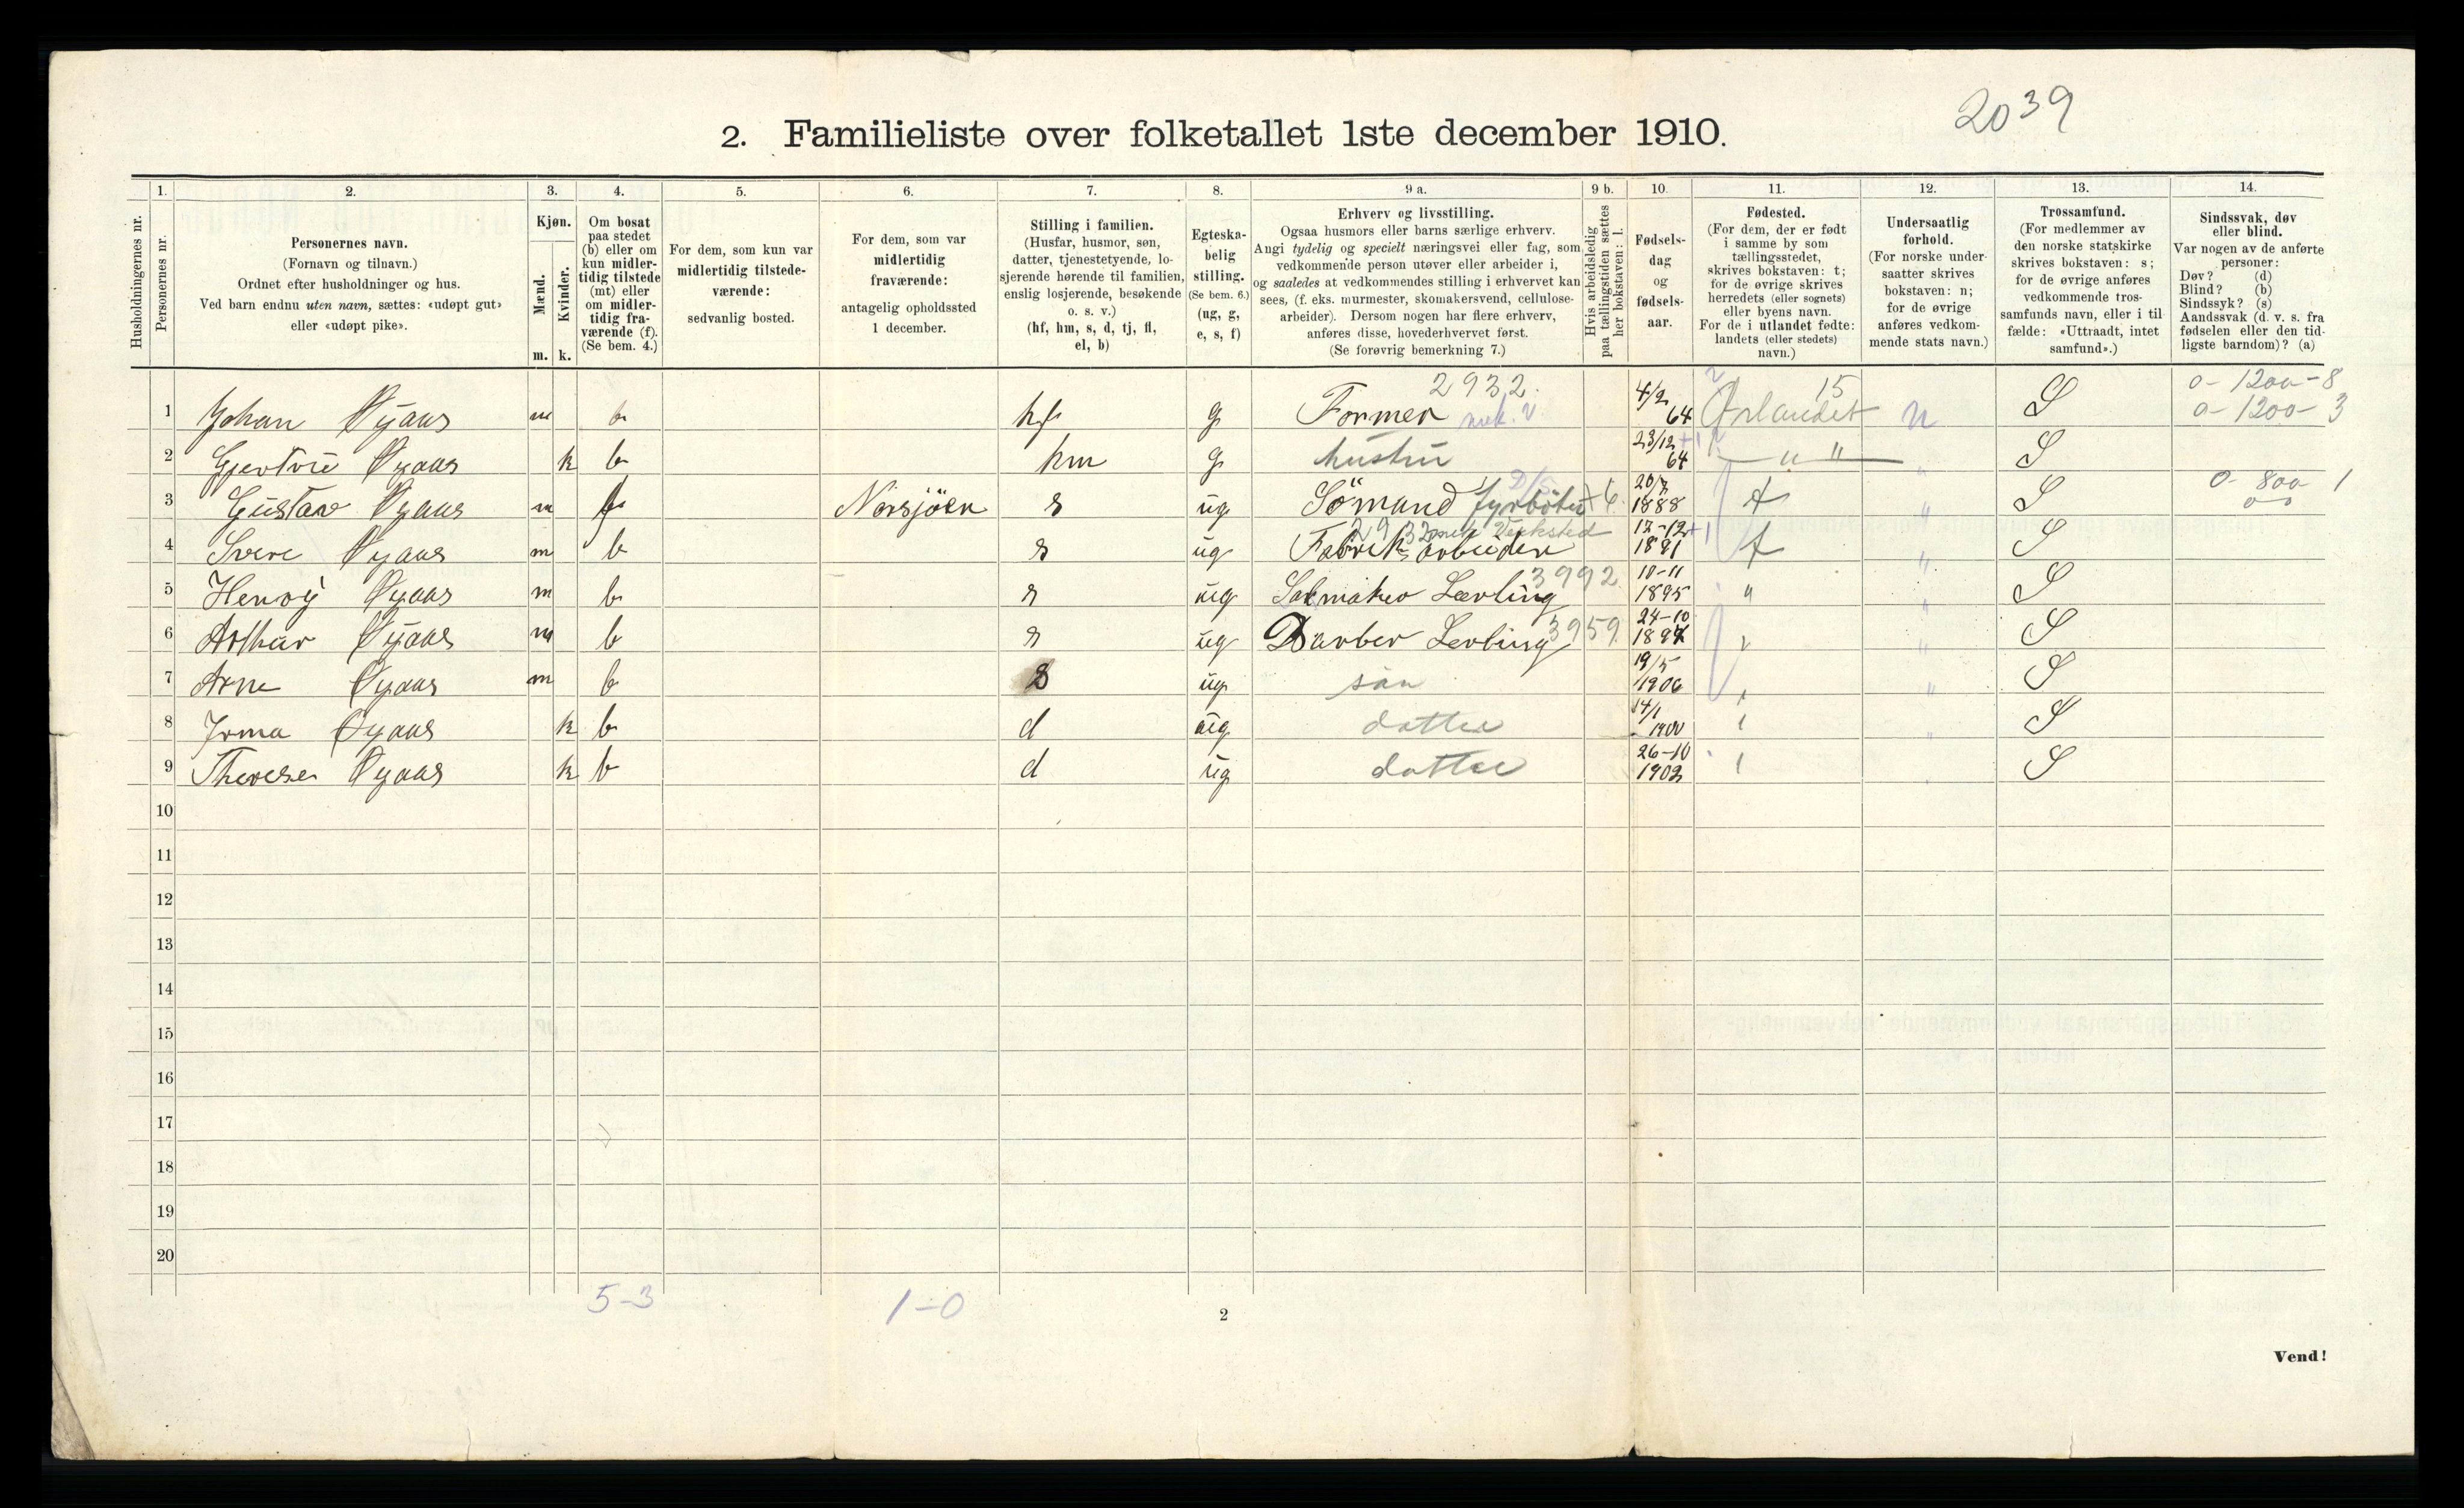 2039
2. Familieliste over folketallet 1ste december 1910.
1. 2. 3. 4. 5. 6. 7. 8. 9 a. 9 b. 10. 11. 12. 13. 14.
Husholdningernes nr.
Personernes nr.
Personernes navn.
(Fornavn og tilnavn.)
Ordnet efter husholdninger og hus.
Ved barn endnu uten navn, sættes: «udøpt gut»
eller «udøpt pike».
Kjøn.
Mænd.
Kvinder.
m. k.
Om bosat
paa stedet
(b) eller om
kun midler-
tidig tilstede
(mt) eller
om midler-
tidig fra-
værende (f).
(Se bem. 4.)
For dem, som kun var
midlertidig tilstede-
værende:
sedvanlig bosted.
For dem, som var
midlertidig
fraværende:
antagelig opholdssted
1 december.
Stilling i familien.
(Husfar, husmor, søn,
datter, tjenestetyende, lo-
sjerende hørende til familien,
enslig losjerende, besøkende
o. s. v.)
(hf, hm, s, d, tj, fl,
el, b)
Egteska-
belig
stilling.
(Se bem. 6.)
(ug, g,
e, s, f)
Erhverv og livsstilling.
Ogsaa husmors eller barns særlige erhverv.
Angi tydelig og specielt næringsvei eller fag, som
vedkommende person utøver eller arbeider i,
og saaledes at vedkommendes stilling i erhvervet kan
sees, (f. eks. murmester, skomakersvend, cellulose-
arbeider). Dersom nogen har flere erhverv,
anføres disse, hovederhvervet først.
(Se forøvrig bemerkning 7.)
Hvis arbeidsledig
paa tællingstiden sættes
her bokstaven: l.
Fødsels-
dag
og
fødsels-
aar.
Fødested.
(For dem, der er født
i samme by som
tællingsstedet,
skrives bokstaven: t;
for de øvrige skrives
herredets (eller sognets)
eller byens navn.
For de i utlandet fødte:
landets (eller stedets)
navn.)
Undersaatlig
forhold.
(For norske under-
saatter skrives
bokstaven: n;
for de øvrige
anføres vedkom-
mende stats navn.)
Trossamfund.
(For medlemmer av
den norske statskirke
skrives bokstaven: s;
for de øvrige anføres
vedkommende tros-
samfunds navn, eller i til-
fælde: «Uttraadt, intet
samfund».)
Sindssvak, døv
eller blind.
Var nogen av de anførte
personer:
Døv? (d)
Blind? (b)
Sindssyk? (s)
Aandssvak (d. v. s. fra
fødselen eller den tid-
ligste barndom)? (a)
2932. 4/2 15 0-1200-8
1 Johan Øyaas m b hf g Former mek. v. 64 Ørlandet n S 0-1200-3
23/12 +1
2 Gjertrü Øyaas k b hm g hustru 64 " " S
20/7 0-800 1
3 Güstav Øyaas m f Norsjöen s ug Sömand fyrböter 1888 t " S
2932 mek Verksted 17-12 +1
4 Svere Øyaas m b s ug Fabrik arbeider 1891 t " S
3992. 10-11
5 Henry Øyaas m b s ug Salmaker Lærling 1895 " " S
24-10
6 Arthur Øyaas m b s ug Barber Lerling 3959. 1897 " " S
19/5
7 Arne Øyaas m b s ug søn 1906 " " S
14/1
8 Irma Øyaas k b d ug datter 1900 " S
26-10
9 Therese Øyaas k b d ug datter 1902 " S
10
11
12
13
14
15
16
17
18
19
20
5-3 1-0
2
Vend!